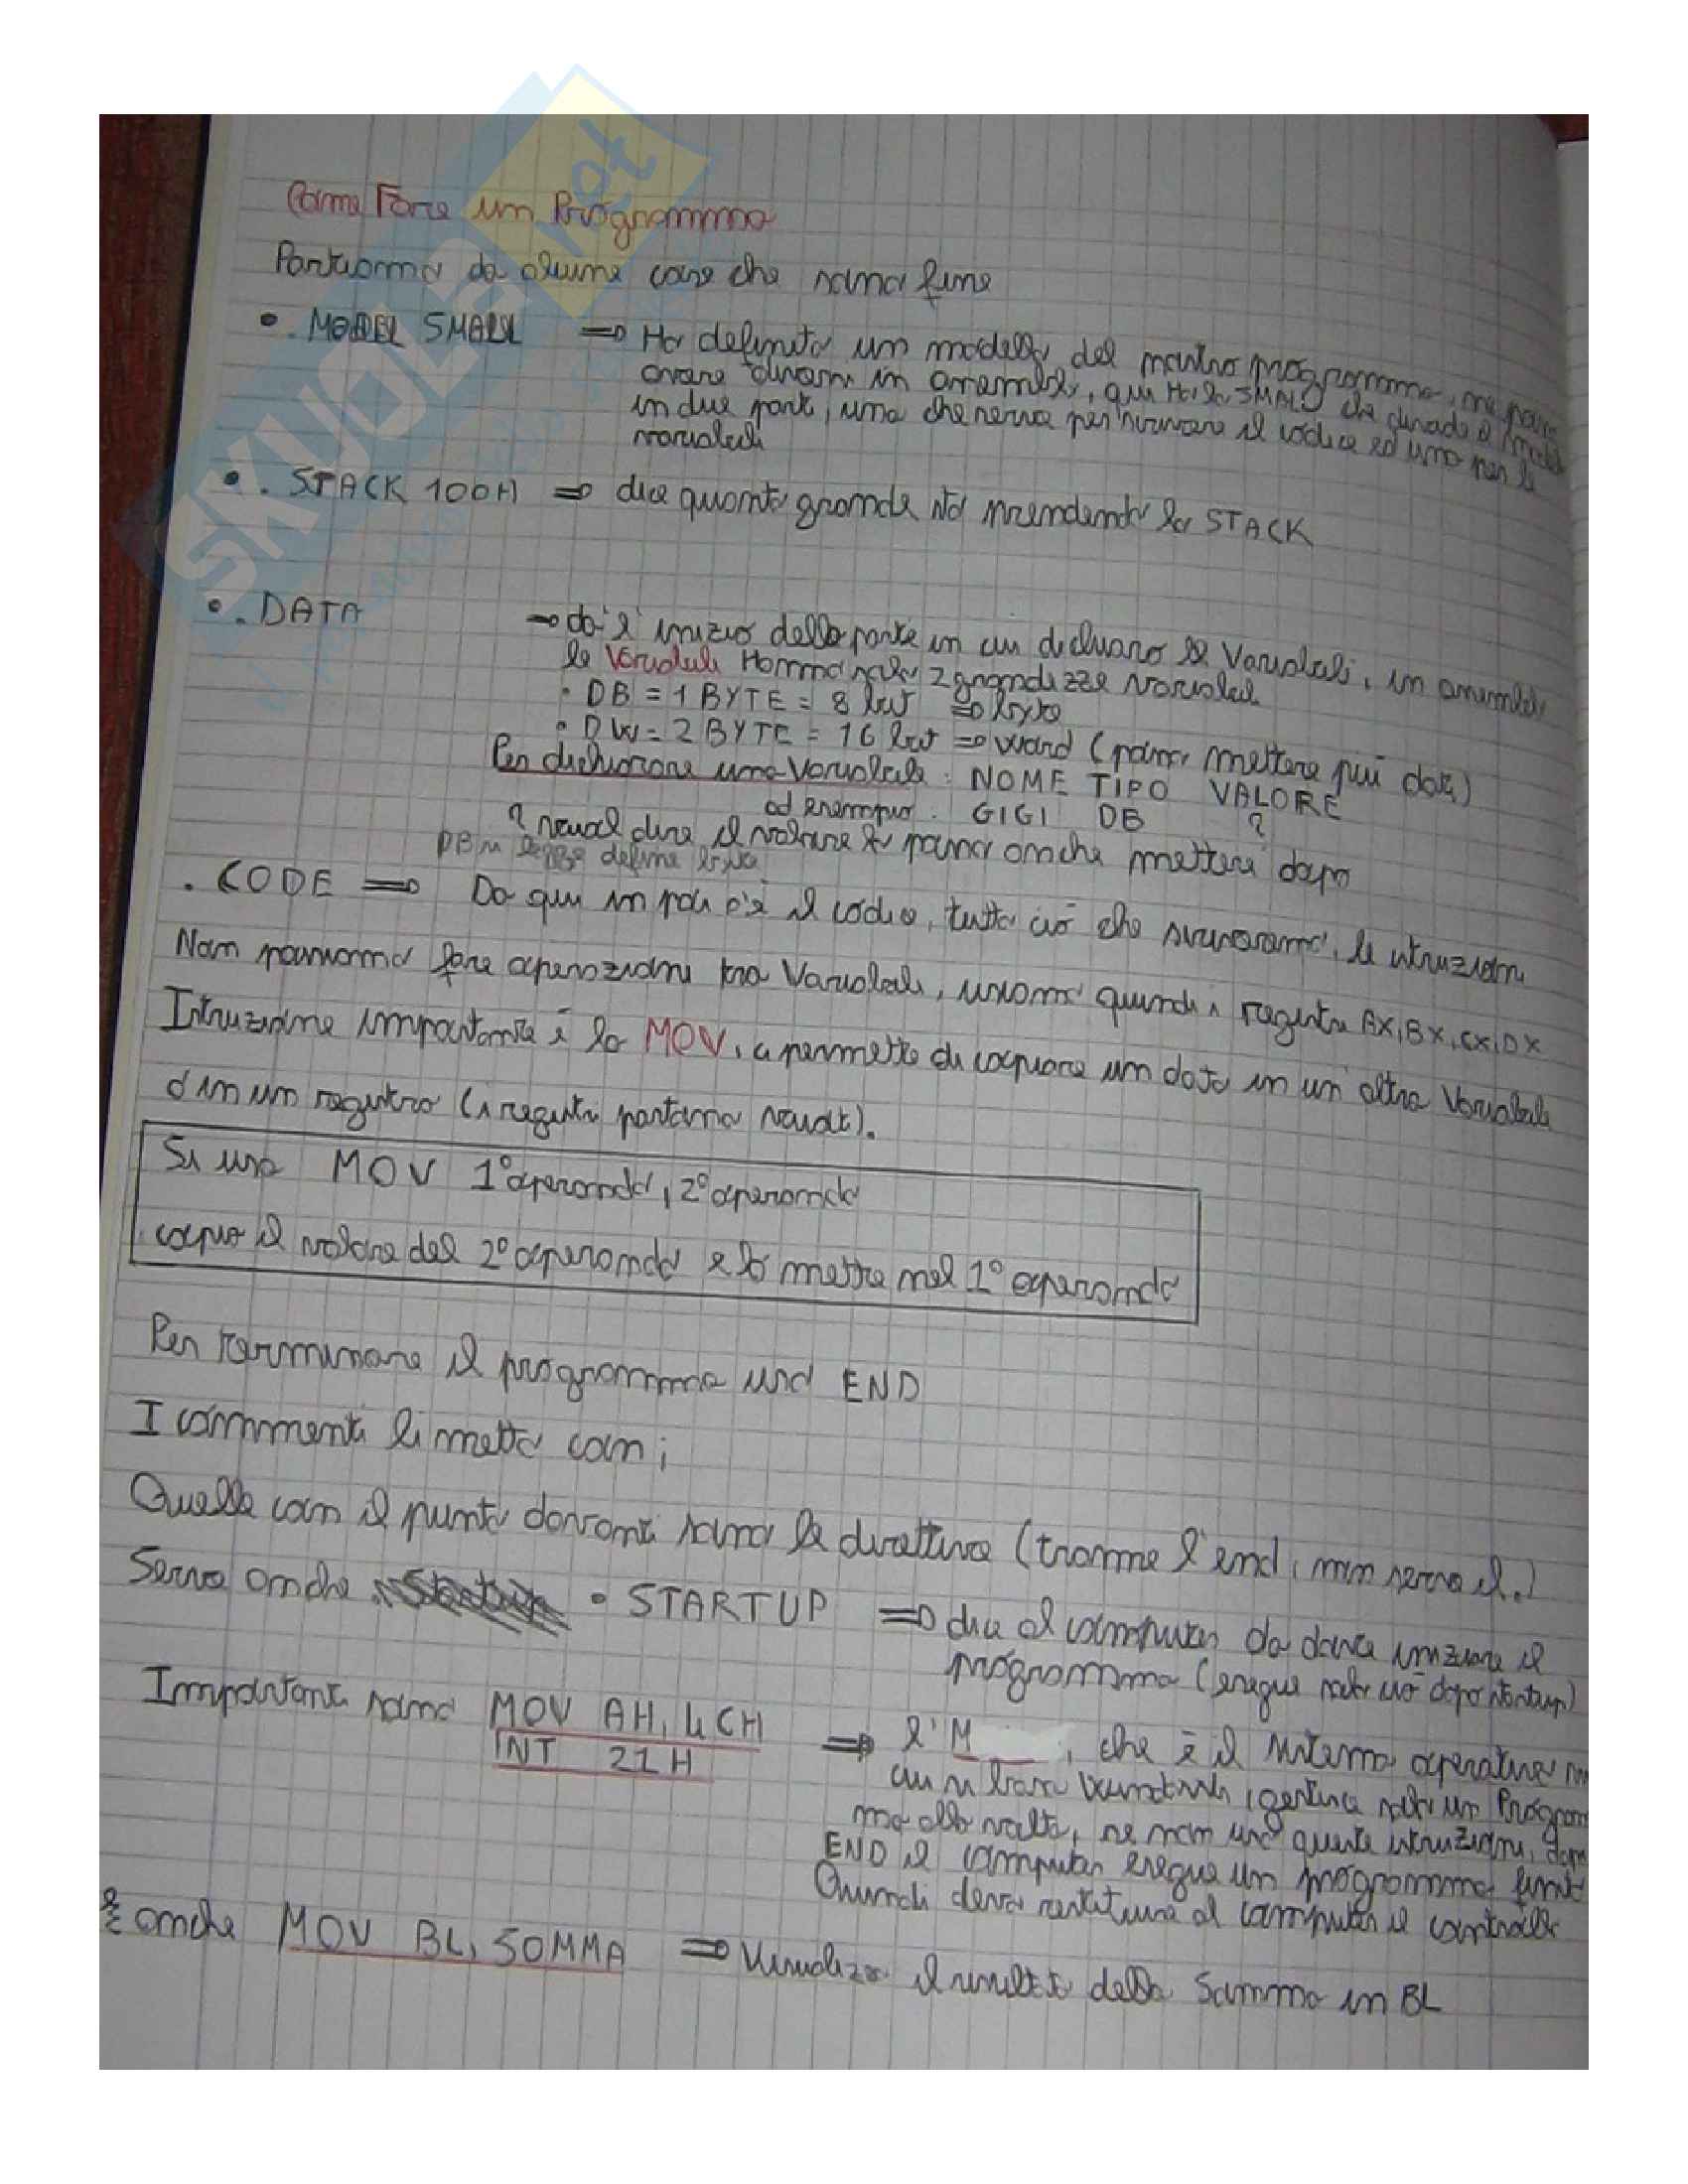 Come Fare un Programma
Partiamo da alcune cose che sono fisse
• .MODEL SMALL => Ho definito un modello del nostro programma, ne
in assembler, qui Ho lo SMALL che divide il
in due parti, una che serve per scrivere il codice ed una per le
variabili
• .STACK 100H => dice quanto grande sto prendendo lo STACK
• .DATA → dà l'inizio della parte in cui dichiaro le Variabili, in assembler
le Variabili Hanno solo 2 grandezze variabili
• DB = 1 BYTE = 8 bit => byte
• DW = 2 BYTE = 16 bit => word (posso mettere più dati)
Per dichiarare una Variabile: NOME TIPO VALORE
ad esempio: GIGI DB ?
? vuol dire il valore lo posso anche mettere dopo
DB si legge define byte
.CODE => Da qui in poi c'è il codice, tutto ciò che scriveremo, le istruzioni
Non possiamo fare operazioni tra Variabili, usiamo quindi i registri AX, BX, CX, DX
Istruzione importante è la MOV, ci permette di copiare un dato in un'altra Variabile
o in un registro (i registri partono vuoti).
Si usa MOV 1° operando, 2° operando
copio il valore del 2° operando e lo mette nel 1° operando
Per terminare il programma uso END
I commenti li metto con ;
Quelle con il punto davanti sono le direttive (tranne l'end, non serve il .)
Serve anche .STARTUP => dice al computer da dove iniziare il
programma (esegue solo ciò dopo startup)
Importanti sono MOV AH, 4CH
INT 21H => l'M , che è il sistema operativo su
cui si basa Windows, gestisce solo un Program
ma alla volta, se non uso queste istruzioni, dopo
END il computer esegue un programma finito
Quindi devo restituire al computer il controllo
E anche MOV BL, SOMMA => Visualizza il risultato della Somma in BL
SKUOLA.net